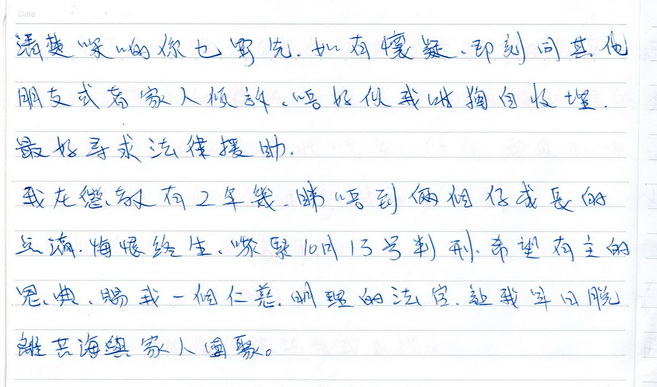 Date
清楚 啲你乜野先．如有懷疑．即刻同其他
朋友或者家人傾訴．唔好似我咁獨自收埋．
最好尋求法律援助．
我在懲教有2年幾．睇唔到倆個仔成長的
點滴．悔恨終生．嚟緊10月13号判刑．希望有主的
恩典．賜我一個仁慈．明理的法官．讓我早日脫
離苦海與家人團聚。